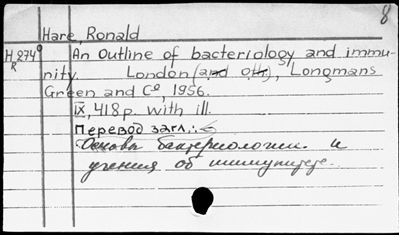 8
Hare, Ronald
H 274⁰ An Outline of bacteriology and immu-
R nity. London (and oth.), Longmans
Green and Cº, 1956.
IX, 418 p. with ill.
Перевод загл.:
Основы бактериологии и
учения об иммунитете.